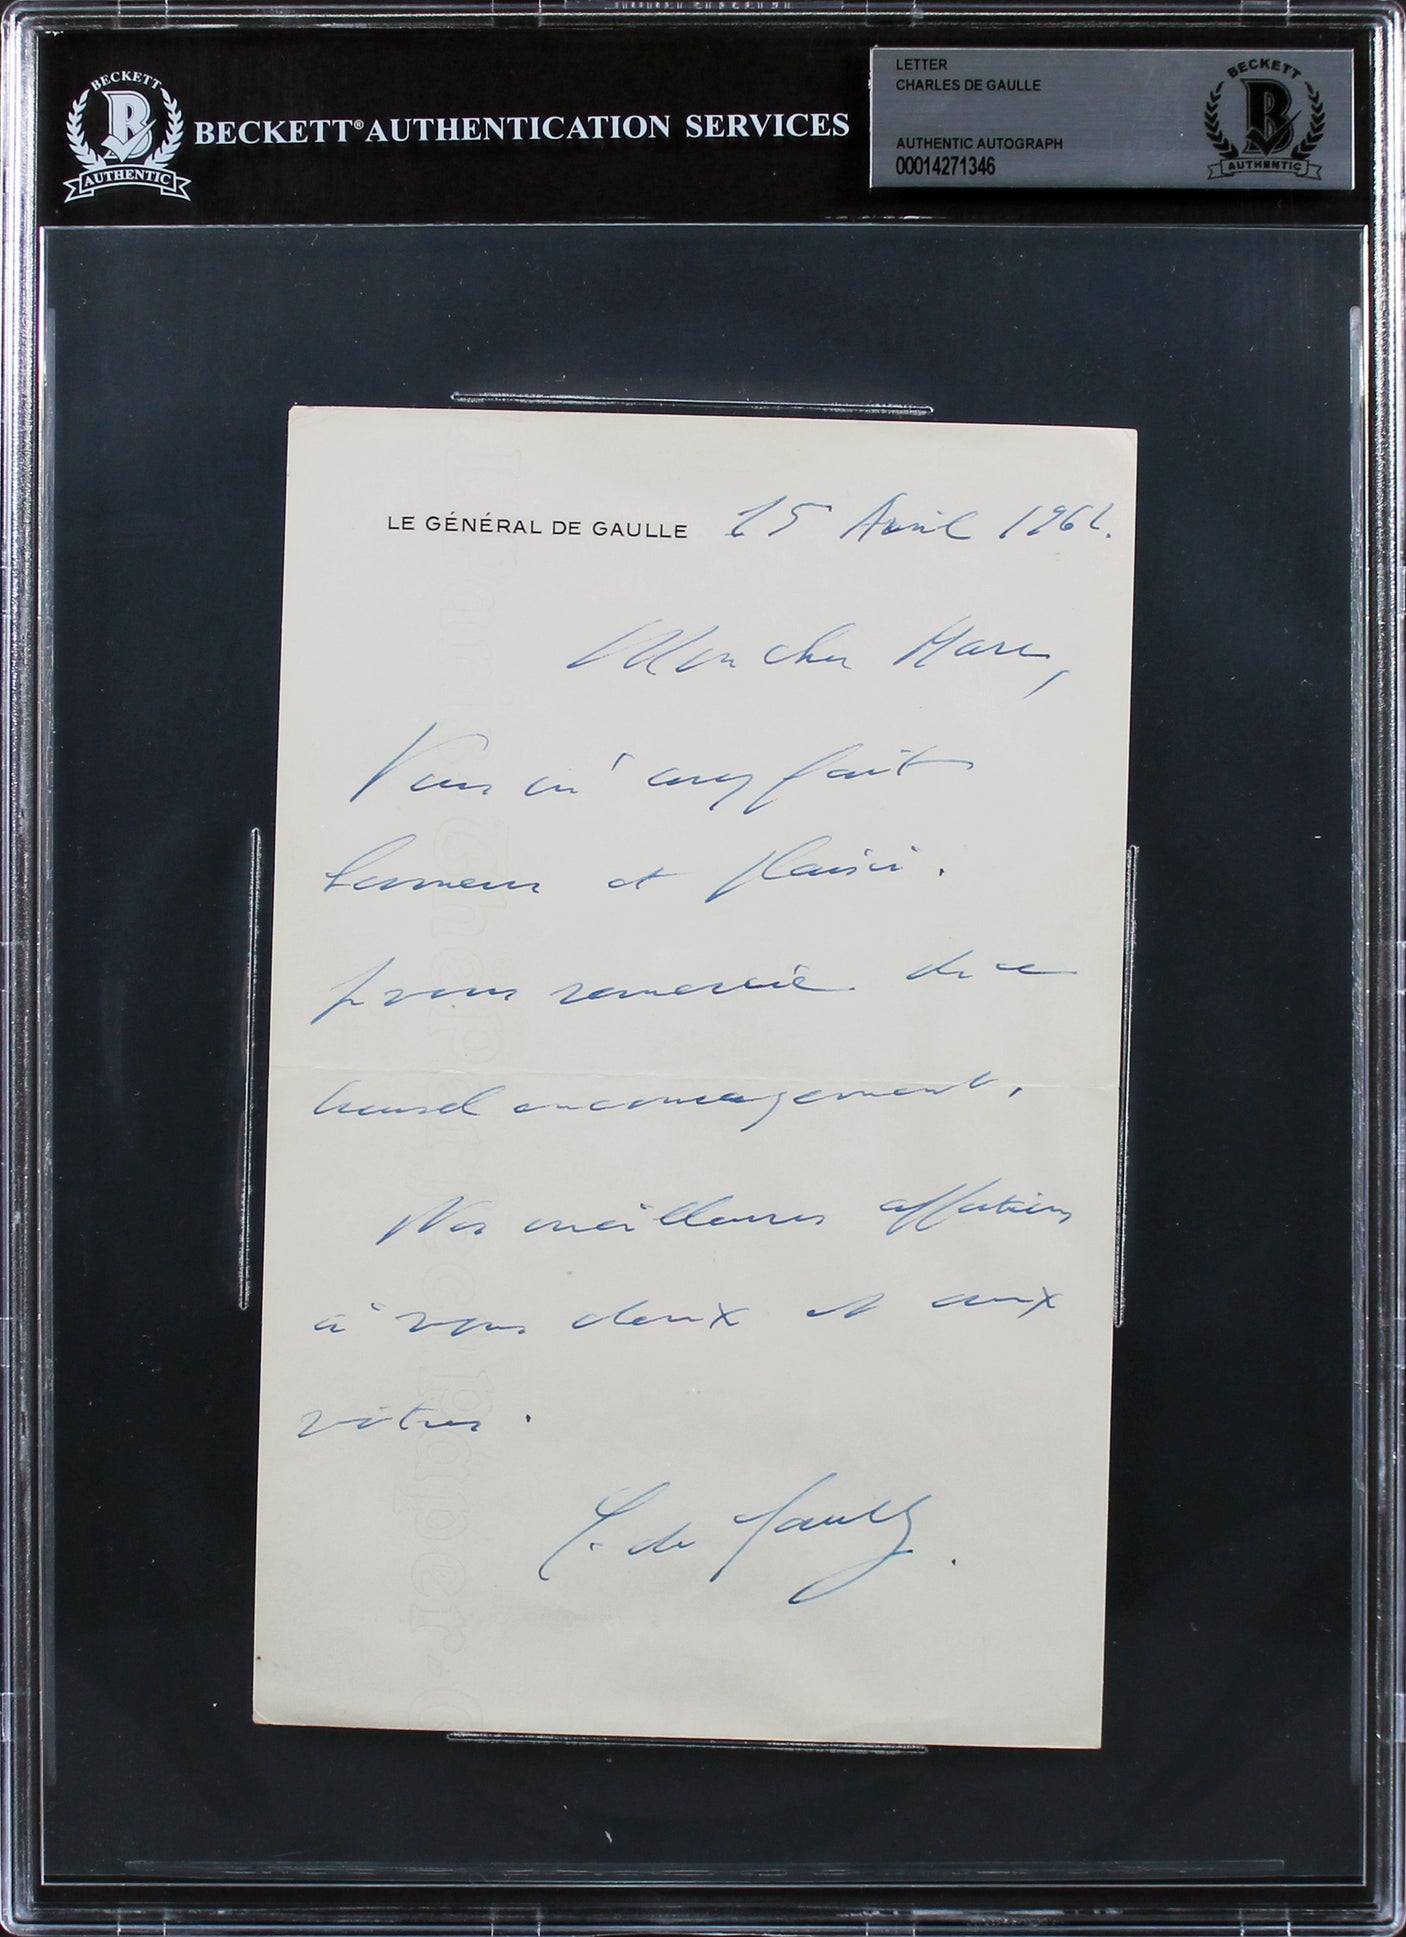 BECKETT
B
AUTHENTIC
BECKETT® AUTHENTICATION SERVICES
LETTER
CHARLES DE GAULLE
AUTHENTIC AUTOGRAPH
00014271346
BECKETT
B
AUTHENTIC
LE GÉNÉRAL DE GAULLE 15 Avril 1961.
Mon cher Marc,
Vous m'avez fait
honneur et plaisir.
Je vous remercie de ce
nouvel encouragement.
Nos meilleures affections
à vous deux et aux
vôtres.
C. de Gaulle.